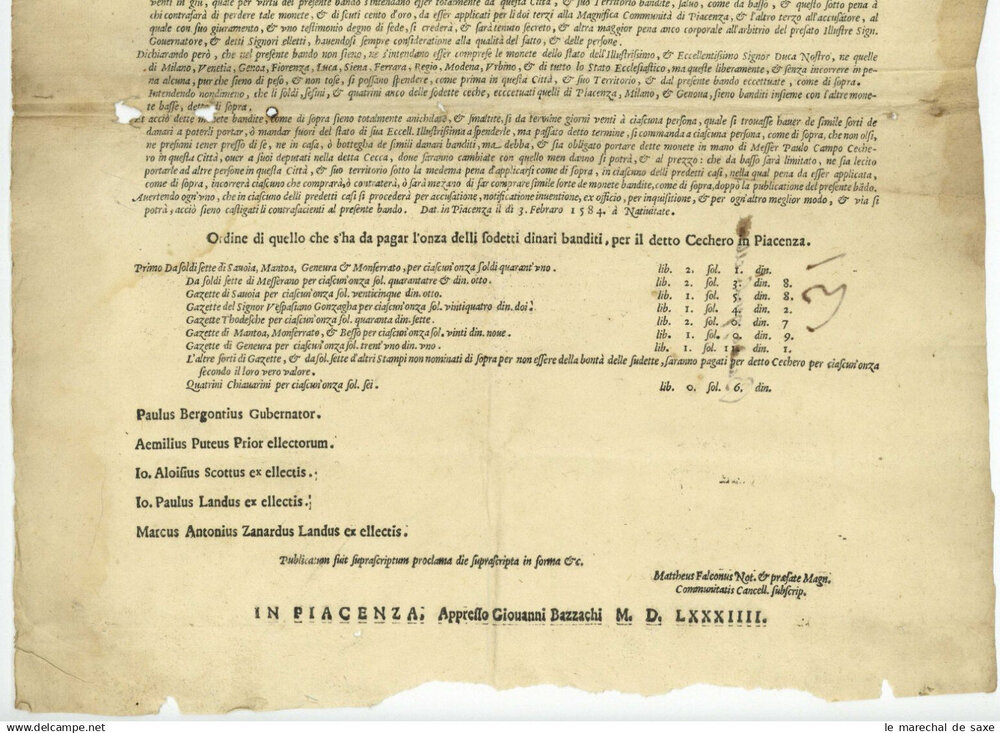 venti in giu, quale per virtu del presente bando s'intendano esser totalmente da questa Città, & suo Territorio bandite, saluo, come da basso, & questo sotto pena à
chi contrafarà di perdere tale monete, & di scuti cento d'oro, da esser applicati per li doi terzi alla Magnifica Communità di Piacenza, & l'altro terzo all'accusatore, al
quale con suo giuramento, & vno testimonio degno di fede, si crederà, & sarà tenuto secreto, & altra maggior pena anco corporale all'arbitrio del prefato Illustre Sign.
Gouernatore, & detti Signori elletti, hauendosi sempre consideratione alla qualità del fatto, & delle persone.
Dichiarando però, che nel presente bando non sieno, ne s'intendano esser comprese le monete dello stato dell'Illustrissimo, & Eccellentissimo Signor Duca Nostro, ne quelle
di Milano, Venetia, Genoa, Fiorenza, Luca, Siena, Ferrara, Regio, Modena, Vrbino, & di tutto lo Stato Ecclesiastico, ma queste liberamente, & senza incorrere in pe-
na alcuna, pur che sieno di peso, & non tose, si possano spendere, come prima in questa Città, & suo Territorio, & dal presente bando eccettuate, come di sopra.
Intendendo nondimeno, che li soldi, sesini, & quatrini anco delle sodette ceche, eccettuati quelli di Piacenza, Milano, & Genoua, sieno banditi insieme con l'altre mone-
te basse, dette di sopra.
Et acciò dette monete bandite, come di sopra sieno totalmente anichilate, & smaltite, si da termine giorni venti à ciascuna persona, quale si trouasse hauer de simile sorti de
danari a poterli portar, ò mandar fuori del stato di sua Eccell. Illustrissima a spenderle, ma passato detto termine, si commanda a ciascuna persona, come di sopra, che non osi,
ne presumi tener presso di se, ne in casa, ò bottegha de simili danari banditi, ma debba, & sia obligato portare dette monete in mano di Messer Paulo Campo Ceche-
ro in questa Città, ouer a suoi deputati nella detta Cecca, doue saranno cambiate con quello men danno si potrà, & al prezzo: che da basso sarà limitato, ne sia lecito
portarle ad altre persone in questa Città, & suo territorio sotto la medema pena d'applicarsi come di sopra, in ciascuno delli predetti casi, nella qual pena da esser applicata,
come di sopra, incorrerà ciascuno che comprarà, ò contraterà, ò sarà mezano di far comprare simile sorte de monete bandite, come di sopra, doppo la publicatione del presente bādo.
Auertendo ogn'vno, che in ciascuno delli predetti casi si procederà per accusatione, notificatione inuentione, ex officio, per inquisitione, & per ogn'altro meglior modo, & via si
potrà, acciò sieno castigati li contrafacienti al presente bando. Dat. in Piacenza il dì 3. Febraro 1584. à Natiuitate.
Ordine di quello che s'ha da pagar l'onza delli sodetti dinari banditi, per il detto Cechero in Piacenza.
Primo Da soldi sette di Sauoia, Mantoa, Geneura & Monferrato, per ciascun'onza soldi quarant'vno. lib. 2. sol. 1. din.
Da soldi sette di Messerano per ciascun'onza sol. quarantatre & din. otto. lib. 2. sol. 3. din. 8.
Gazette di Sauoia per ciascun'onza sol. venticinque din. otto. lib. 1. sol. 5. din. 8.
Gazette del Signor Vespasiano Gonzagha per ciascun'onza sol. vintiquatro din. doi. lib. 1. sol. 4. din. 2.
Gazette Thodesche per ciascun'onza sol. quaranta din. sette. lib. 2. sol. 0. din. 7
Gazette di Mantoa, Monferrato, & Besso per ciascun'onza sol. vinti din. noue. lib. 1. sol. 0. din. 9.
Gazette di Geneura per ciascun'onza sol. trent'vno din. vno. lib. 1. sol. 11. din. 1.
L'altre sorti di Gazette, & da sol. sette d'altri Stampi non nominati di sopra per non essere della bontà delle sudette, saranno pagati per detto Cechero per ciascun'onza
secondo il loro vero valore.
Quatrini Chiauarini per ciascun'onza sol. sei. lib. 0. sol. 6. din.
Paulus Bergontius Gubernator.
Aemilius Puteus Prior ellectorum.
Io. Aloisius Scottus ex ellectis.
Io. Paulus Landus ex ellectis.
Marcus Antonius Zanardus Landus ex ellectis.
Publicatum fuit suprascriptum proclama die suprascripta in forma &c.
Mattheus Falconus Not. & præfate Magn.
Communitatis Cancell. subscrip.
IN PIACENZA, Appresso Giouanni Bazzachi M. D. LXXXIIII.
le marechal de saxe